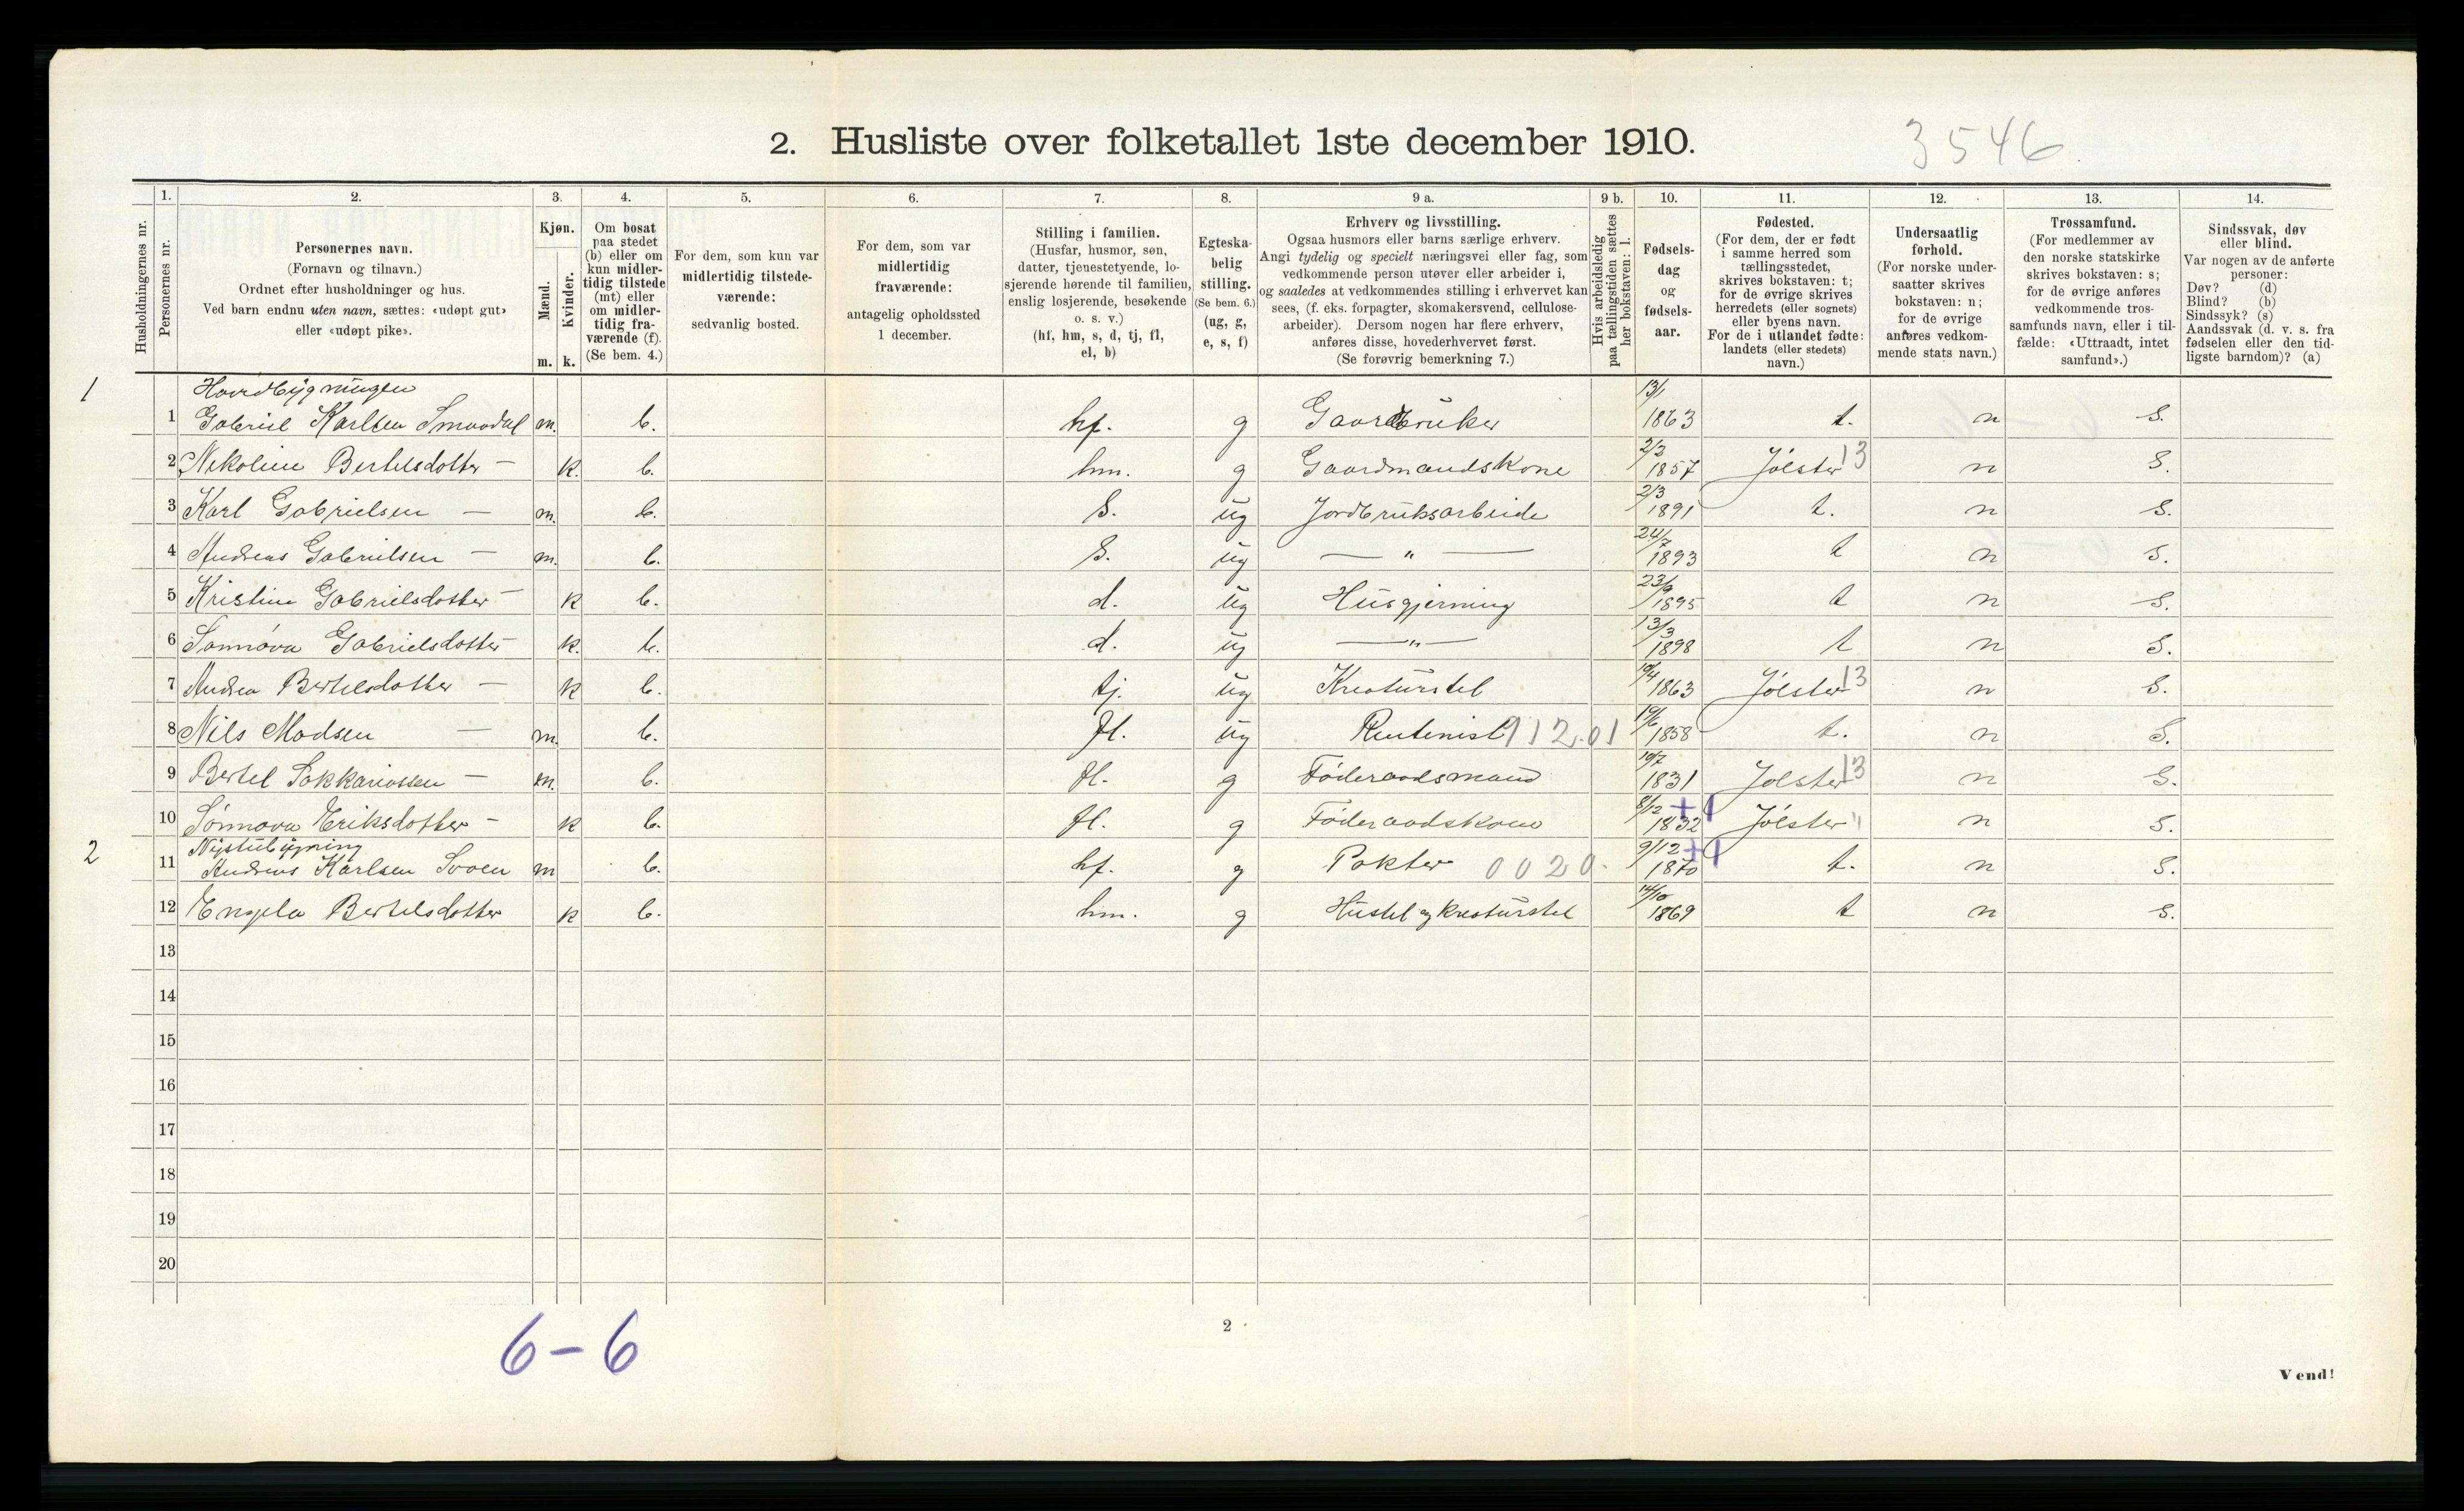 2. Husliste over folketallet 1ste december 1910.
3546
Husholdningernes nr.
1.
Personernes nr.
2.
Personernes navn.
(Fornavn og tilnavn.)
Ordnet efter husholdninger og hus.
Ved barn endnu uten navn, sættes: «udøpt gut»
eller «udøpt pike».
3.
Kjøn.
Mænd.
Kvinder.
m. k.
4.
Om bosat
paa stedet
(b) eller om
kun midler-
tidig tilstede
(mt) eller
om midler-
tidig fra-
værende (f).
(Se bem. 4.)
5.
For dem, som kun var
midlertidig tilstede-
værende:
sedvanlig bosted.
6.
For dem, som var
midlertidig
fraværende:
antagelig opholdssted
1 december.
7.
Stilling i familien.
(Husfar, husmor, søn,
datter, tjenestetyende, lo-
sjerende hørende til familien,
enslig losjerende, besøkende
o. s. v.)
(hf, hm, s, d, tj, fl,
el, b)
8.
Egteska-
belig
stilling.
(Se bem. 6.)
(ug, g,
e, s, f)
9 a.
Erhverv og livsstilling.
Ogsaa husmors eller barns særlige erhverv.
Angi tydelig og specielt næringsvei eller fag, som
vedkommende person utøver eller arbeider i,
og saaledes at vedkommendes stilling i erhvervet kan
sees, (f. eks. forpagter, skomakersvend, cellulose-
arbeider). Dersom nogen har flere erhverv,
anføres disse, hovederhvervet først.
(Se forøvrig bemerkning 7.)
9 b.
Hvis arbeidsledig
paa tællingstiden sættes
her bokstaven: l.
10.
Fødsels-
dag
og
fødsels-
aar.
11.
Fødested.
(For dem, der er født
i samme herred som
tællingsstedet,
skrives bokstaven: t;
for de øvrige skrives
herredets (eller sognets)
eller byens navn.
For de i utlandet fødte:
landets (eller stedets)
navn.)
12.
Undersaatlig
forhold.
(For norske under-
saatter skrives
bokstaven: n;
for de øvrige
anføres vedkom-
mende stats navn.)
13.
Trossamfund.
(For medlemmer av
den norske statskirke
skrives bokstaven: s;
for de øvrige anføres
vedkommende tros-
samfunds navn, eller i til-
fælde: «Uttraadt, intet
samfund».)
14.
Sindssvak, døv
eller blind.
Var nogen av de anførte
personer:
Døv? (d)
Blind? (b)
Sindssyk? (s)
Aandssvak (d. v. s. fra
fødselen eller den tid-
ligste barndom)? (a)
1 Hovedbygningen
1 Gabriel Karlsen m. b. hf. g Gaardbruker 13/1 1863 t. n S.
2 Nikoline Bertelsdotter — k. b. hm. g Gaardmandskone 2/2 1857 Jølster 13 n S.
3 Karl Gabrielsen — m. b. S. ug Jordbruksarbeide 2/3 1891 t. n S.
4 Andreas Gabrielsen — m. b. S. ug — " — 24/7 1893 t n S.
5 Kristine Gabrielsdotter — k b. d. ug Husgjerning 23/9 1895 t n S.
6 Sønnøva Gabrielsdotter — k. b. d. ug — " — 13/3 1898 t n S.
7 Andrea Bertelsdotter — k b. tj. ug Kreaturstel 10/4 1863 Jølster 13 n S.
8 Nils Madsen — m. b. fl. ug Rentenist 912.01 19/6 1858 t. n S.
9 Bertel Sakkariassen — m. b. fl. g Føderaadsmand 10/7 1831 Jølster 13 n S.
10 Sønnøva Eriksdotter — k b. fl. g Føderaadskone 8/12 +1 1832 Jølster " n S.
2 Nystubygning
11 Andreas Karlsen m b. hf. g Pakter 0020. 9/12 +1 1870 t. n S.
12 Engela Bertelsdotter k b. hm. g Hustel og Kreaturstel 14/10 1869 t n S.
13
14
15
16
17
18
19
20
6 – 6
2
Vend!